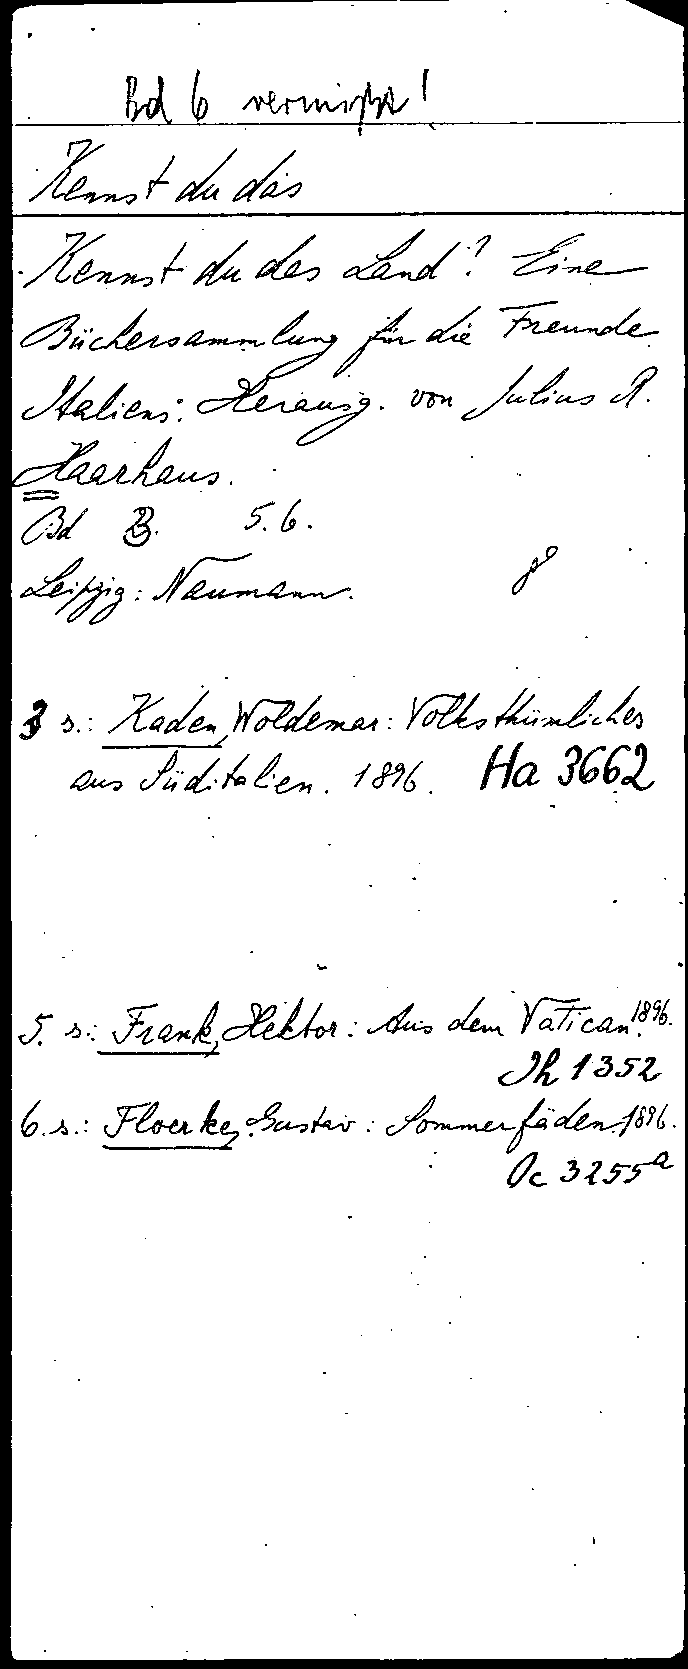 Bd 6 vermißt!
Kennst du das
Kennst du das Land? Eine
Büchersammlung für die Freunde
Italiens. Herausg. von Julius R.
Haarhaus.
Bd 3. 5.6.
Leipzig: Naumann. 8°
3 s.: Kaden, Woldemar: Volksthümliches
aus Süditalien. 1896. Ha 3662
5. s.: Frank, Hektor: Aus dem Vatican. 1896.
Jh 1352
6. s.: Floerke, Gustav: Sommerfäden. 1896.
Oc 3255a